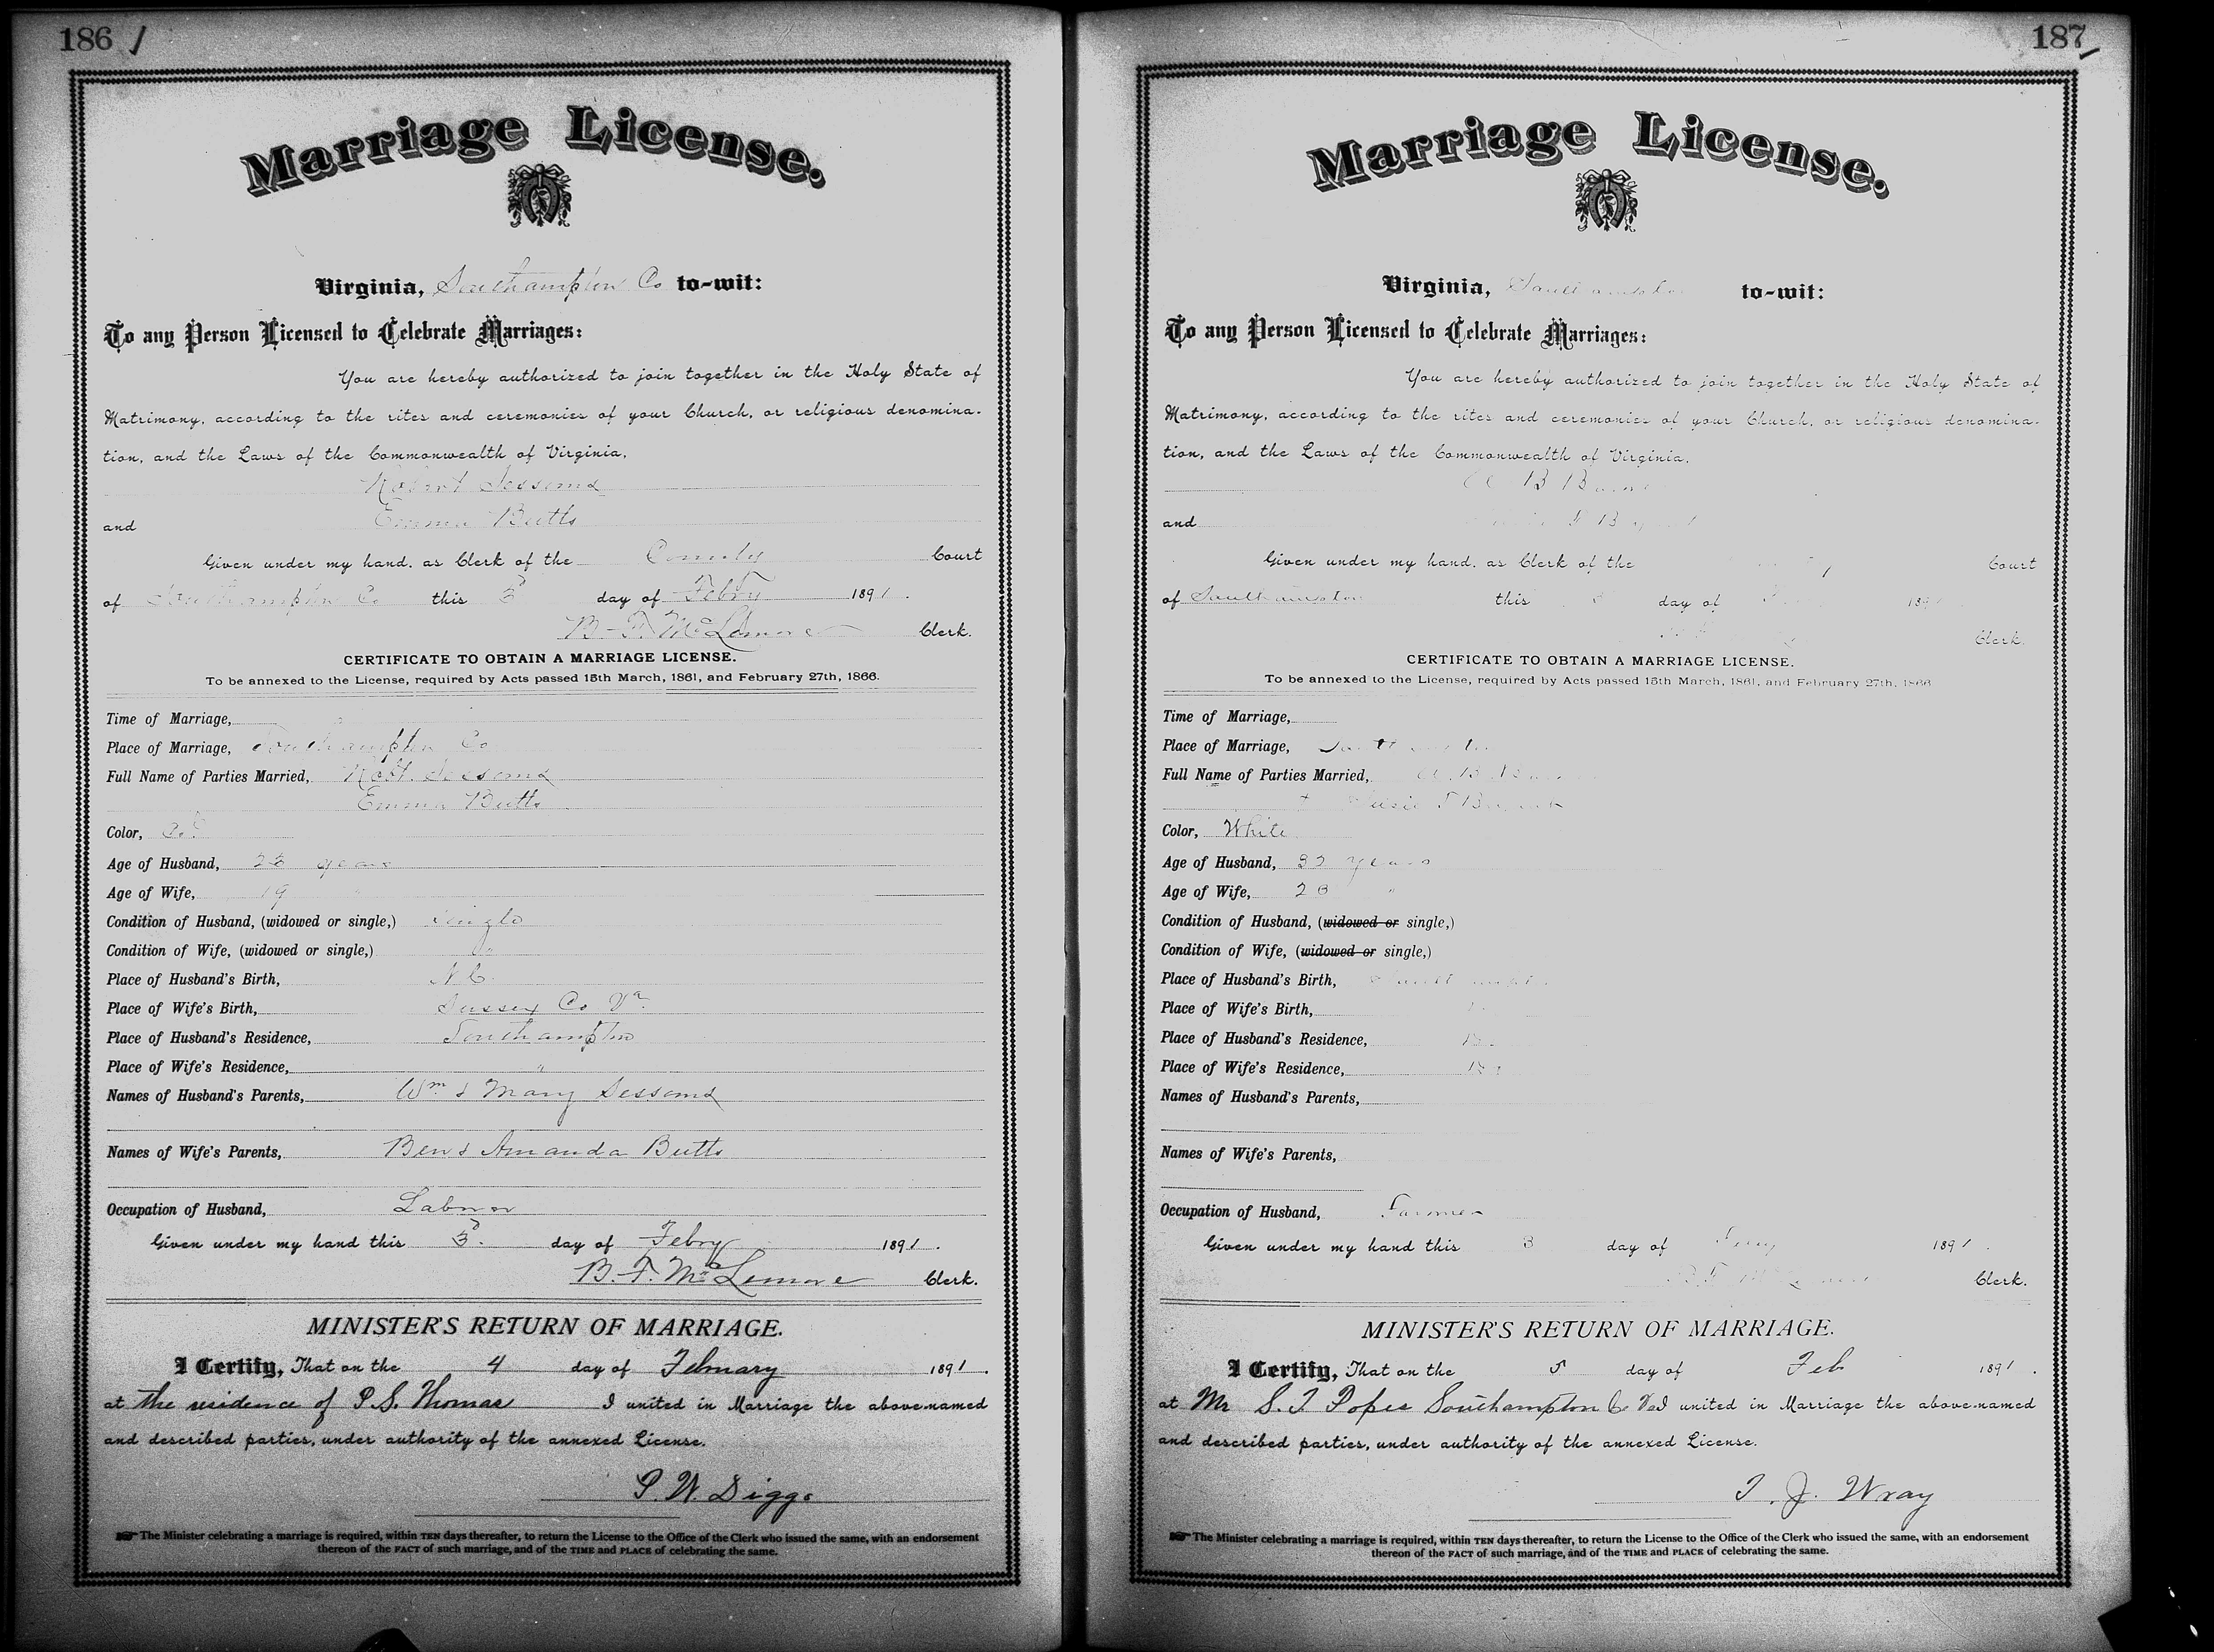 186
Marriage License.
Virginia, Southampton Co to-wit:
To any Person Licensed to Celebrate Marriages:
You are hereby authorized to join together in the Holy State of
Matrimony, according to the rites and ceremonies of your Church, or religious denomina-
tion, and the Laws of the Commonwealth of Virginia,
Robert Sessoms
and Emma Butts
Given under my hand, as Clerk of the County Court
of Southampton Co this 3d day of Febry 1891.
B. F. McLemore Clerk.
CERTIFICATE TO OBTAIN A MARRIAGE LICENSE.
To be annexed to the License, required by Acts passed 15th March, 1861, and February 27th, 1866.
Time of Marriage,
Place of Marriage, Southampton Co
Full Name of Parties Married, Robt. Sessoms
Emma Butts
Color, Cold
Age of Husband, 23 years
Age of Wife, 19 "
Condition of Husband, (widowed or single,) Single
Condition of Wife, (widowed or single,) "
Place of Husband's Birth, N.C.
Place of Wife's Birth, Sussex Co Va.
Place of Husband's Residence, Southampton
Place of Wife's Residence, "
Names of Husband's Parents, Wm & Mary Sessoms
Names of Wife's Parents, Ben & Amanda Butts
Occupation of Husband, Labeor
Given under my hand this 3d. day of Febry 1891.
B. F. McLemore Clerk.
MINISTER'S RETURN OF MARRIAGE.
I Certify, That on the 4 day of February 1891.
at the residence of P. S. Thomas I united in Marriage the above-named
and described parties, under authority of the annexed License.
P. W. Diggs
The Minister celebrating a marriage is required, within TEN days thereafter, to return the License to the Office of the Clerk who issued the same, with an endorsement
thereon of the FACT of such marriage, and of the TIME and PLACE of celebrating the same.
187
Marriage License.
Virginia, Southampton to-wit:
To any Person Licensed to Celebrate Marriages:
You are hereby authorized to join together in the Holy State of
Matrimony, according to the rites and ceremonies of your Church, or religious denomina-
tion, and the Laws of the Commonwealth of Virginia,
B
and
Given under my hand, as Clerk of the Court
of Southampton this day of 189
Clerk.
CERTIFICATE TO OBTAIN A MARRIAGE LICENSE.
To be annexed to the License, required by Acts passed 15th March, 1861, and February 27th, 1866
Time of Marriage,
Place of Marriage, Southampton
Full Name of Parties Married,
Susie
Color, White
Age of Husband, years
Age of Wife, "
Condition of Husband, (widowed or single,)
Condition of Wife, (widowed or single,)
Place of Husband's Birth, Southampton
Place of Wife's Birth,
Place of Husband's Residence,
Place of Wife's Residence,
Names of Husband's Parents,
Names of Wife's Parents,
Occupation of Husband, Farmer
Given under my hand this 3 day of 1891.
B. F. McLemore Clerk.
MINISTER'S RETURN OF MARRIAGE.
I Certify, That on the 5 day of Feb 1891.
at Mr S. T. Popes Southampton Co Va I united in Marriage the above-named
and described parties, under authority of the annexed License.
T. J. Wray
The Minister celebrating a marriage is required, within TEN days thereafter, to return the License to the Office of the Clerk who issued the same, with an endorsement
thereon of the FACT of such marriage, and of the TIME and PLACE of celebrating the same.